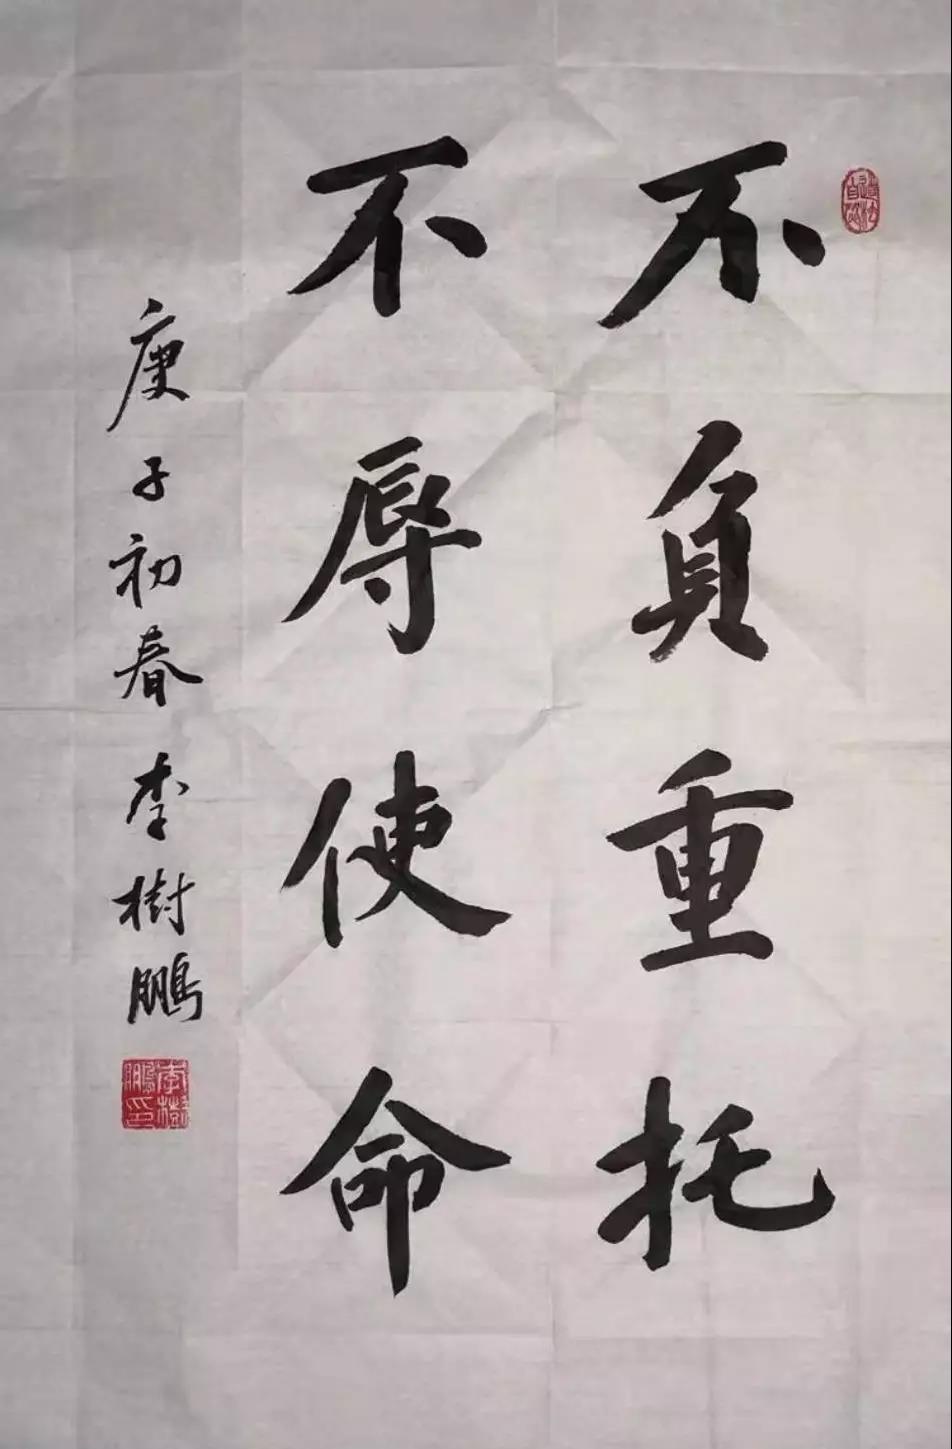 不负重托
不辱使命
庚子初春 李樹鵬
李樹鵬印